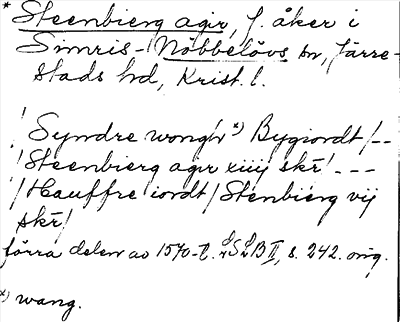 * Steenbierg agir, f. åker i
Simris-Nöbbelövs sn, Järre-
stads hd, Krist. l.
! Syndre wongh *) Bygiordt /--
! Steenbierg agir xiiij skr̄! ---
/ Hauffre iordt / Stenbierg vij
skr̄ /
förra delen av 1570-t. SB II, s. 242. orig.
*) wang.